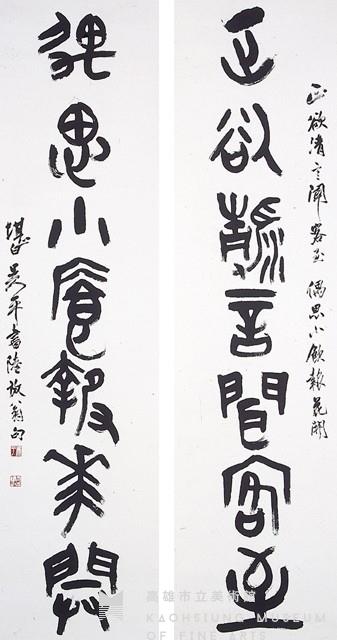 正欲清言聞客至 偶思小飲報花開
正欲清言聞客至
偶思小飲報花開
堪白吳平書陸放翁句
高雄市立美術館
KAOHSIUNG MUSEUM
OF FINE ARTS